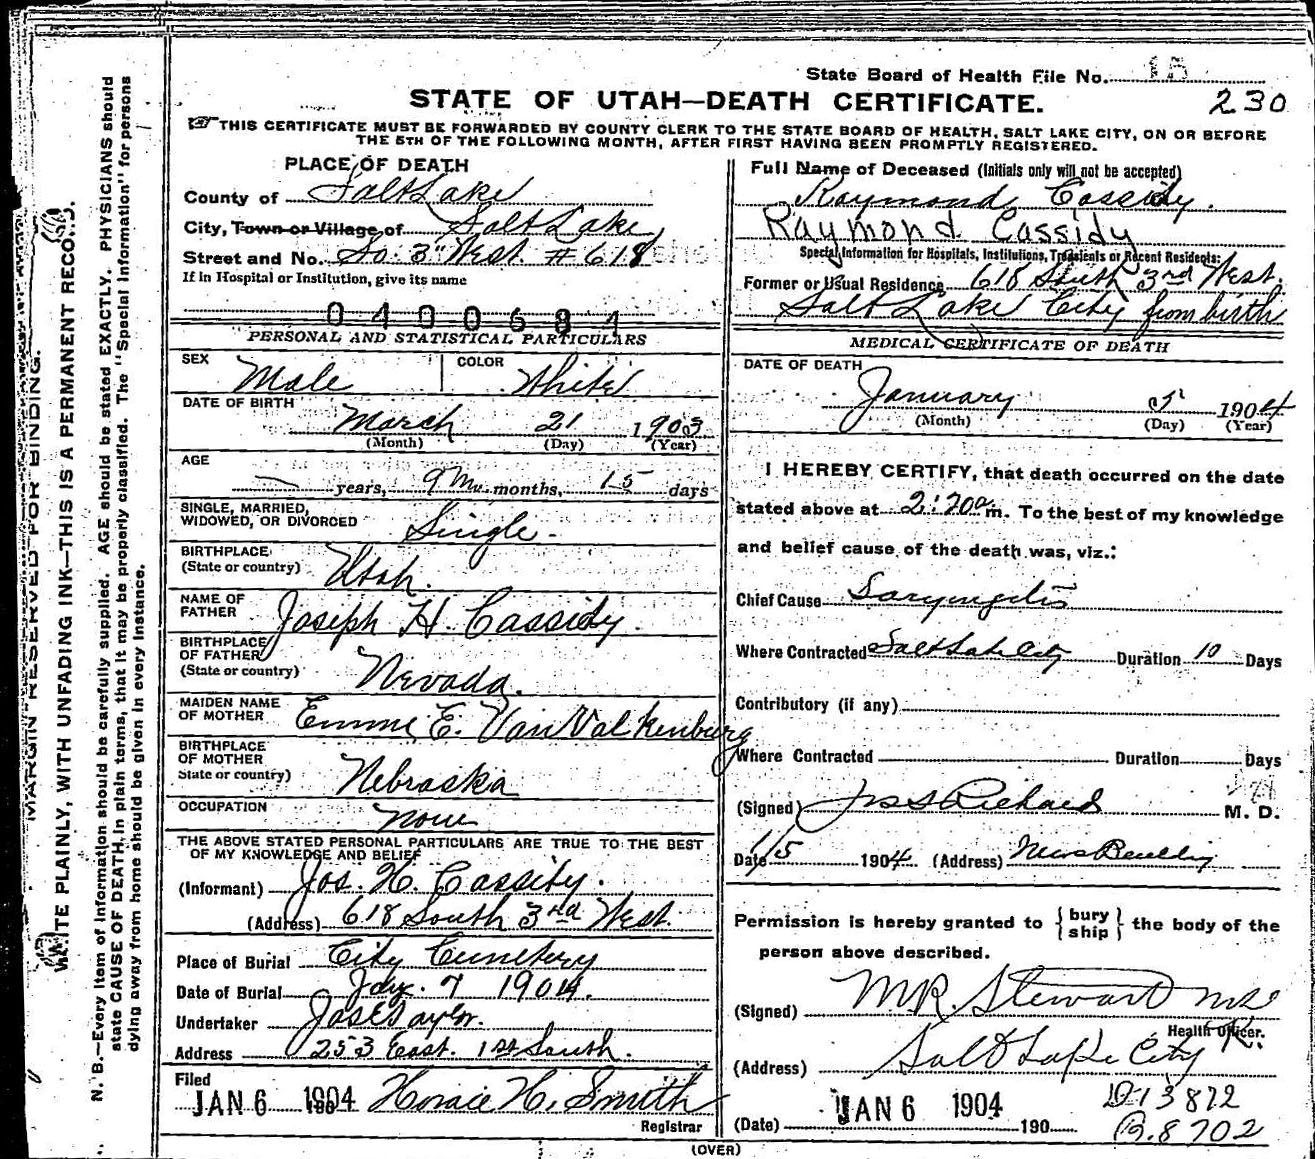 State Board of Health File No. 15
STATE OF UTAH—DEATH CERTIFICATE.
230
THIS CERTIFICATE MUST BE FORWARDED BY COUNTY CLERK TO THE STATE BOARD OF HEALTH, SALT LAKE CITY, ON OR BEFORE
THE 5TH OF THE FOLLOWING MONTH, AFTER FIRST HAVING BEEN PROMPTLY REGISTERED.
PLACE OF DEATH
County of Salt Lake
City, Town or Village of Salt Lake
Street and No. So. 3" West. # 618
If in Hospital or Institution, give its name
0400684
Full Name of Deceased (Initials only will not be accepted)
Raymond Cassidy.
Raymond Cassidy
Special Information for Hospitals, Institutions, Transients or Recent Residents:
Former or Usual Residence 618 South 3rd West.
Salt Lake City from birth
PERSONAL AND STATISTICAL PARTICULARS
SEX Male COLOR White
DATE OF BIRTH
March 21 1903
(Month) (Day) (Year)
AGE
years, 9 Mo. months, 15 days
SINGLE, MARRIED,
WIDOWED, OR DIVORCED Single.
BIRTHPLACE
(State or country) Utah.
NAME OF
FATHER Joseph H. Cassidy.
BIRTHPLACE
OF FATHER
(State or country) Nevada.
MAIDEN NAME
OF MOTHER Emma E. Van Valkenburg
BIRTHPLACE
OF MOTHER
State or country) Nebraska
OCCUPATION none
THE ABOVE STATED PERSONAL PARTICULARS ARE TRUE TO THE BEST
OF MY KNOWLEDGE AND BELIEF
(Informant) Jos. H. Cassity.
(Address) 618 South 3rd West
Place of Burial City Cemetery
Date of Burial Jay. 7 1904.
Undertaker Jos E Taylor.
Address 253 East. 1st South.
Filed
JAN 6 1904 Horace H. Smith
Registrar
MEDICAL CERTIFICATE OF DEATH
DATE OF DEATH
January 5 1904
(Month) (Day) (Year)
I HEREBY CERTIFY, that death occurred on the date
stated above at 2:20 a m. To the best of my knowledge
and belief cause of the death was, viz.:
Chief Cause Laryngitis
Where Contracted Salt Lake City Duration 10 Days
Contributory (if any)
Where Contracted Duration Days
(Signed) Richard M. D.
Date 1/5 1904. (Address)
Permission is hereby granted to { bury ship } the body of the
person above described.
(Signed) M.R. Stewart
Health Officer.
(Address) Salt Lake City
(Date) JAN 6 1904 190
D13872
B.8702
(OVER)
MARGIN RESERVED FOR BINDING.
WRITE PLAINLY, WITH UNFADING INK—THIS IS A PERMANENT RECORD.
N. B.—Every item of information should be carefully supplied. AGE should be stated EXACTLY. PHYSICIANS should
state CAUSE OF DEATH in plain terms, that it may be properly classified. The "Special Information" for persons
dying away from home should be given in every instance.